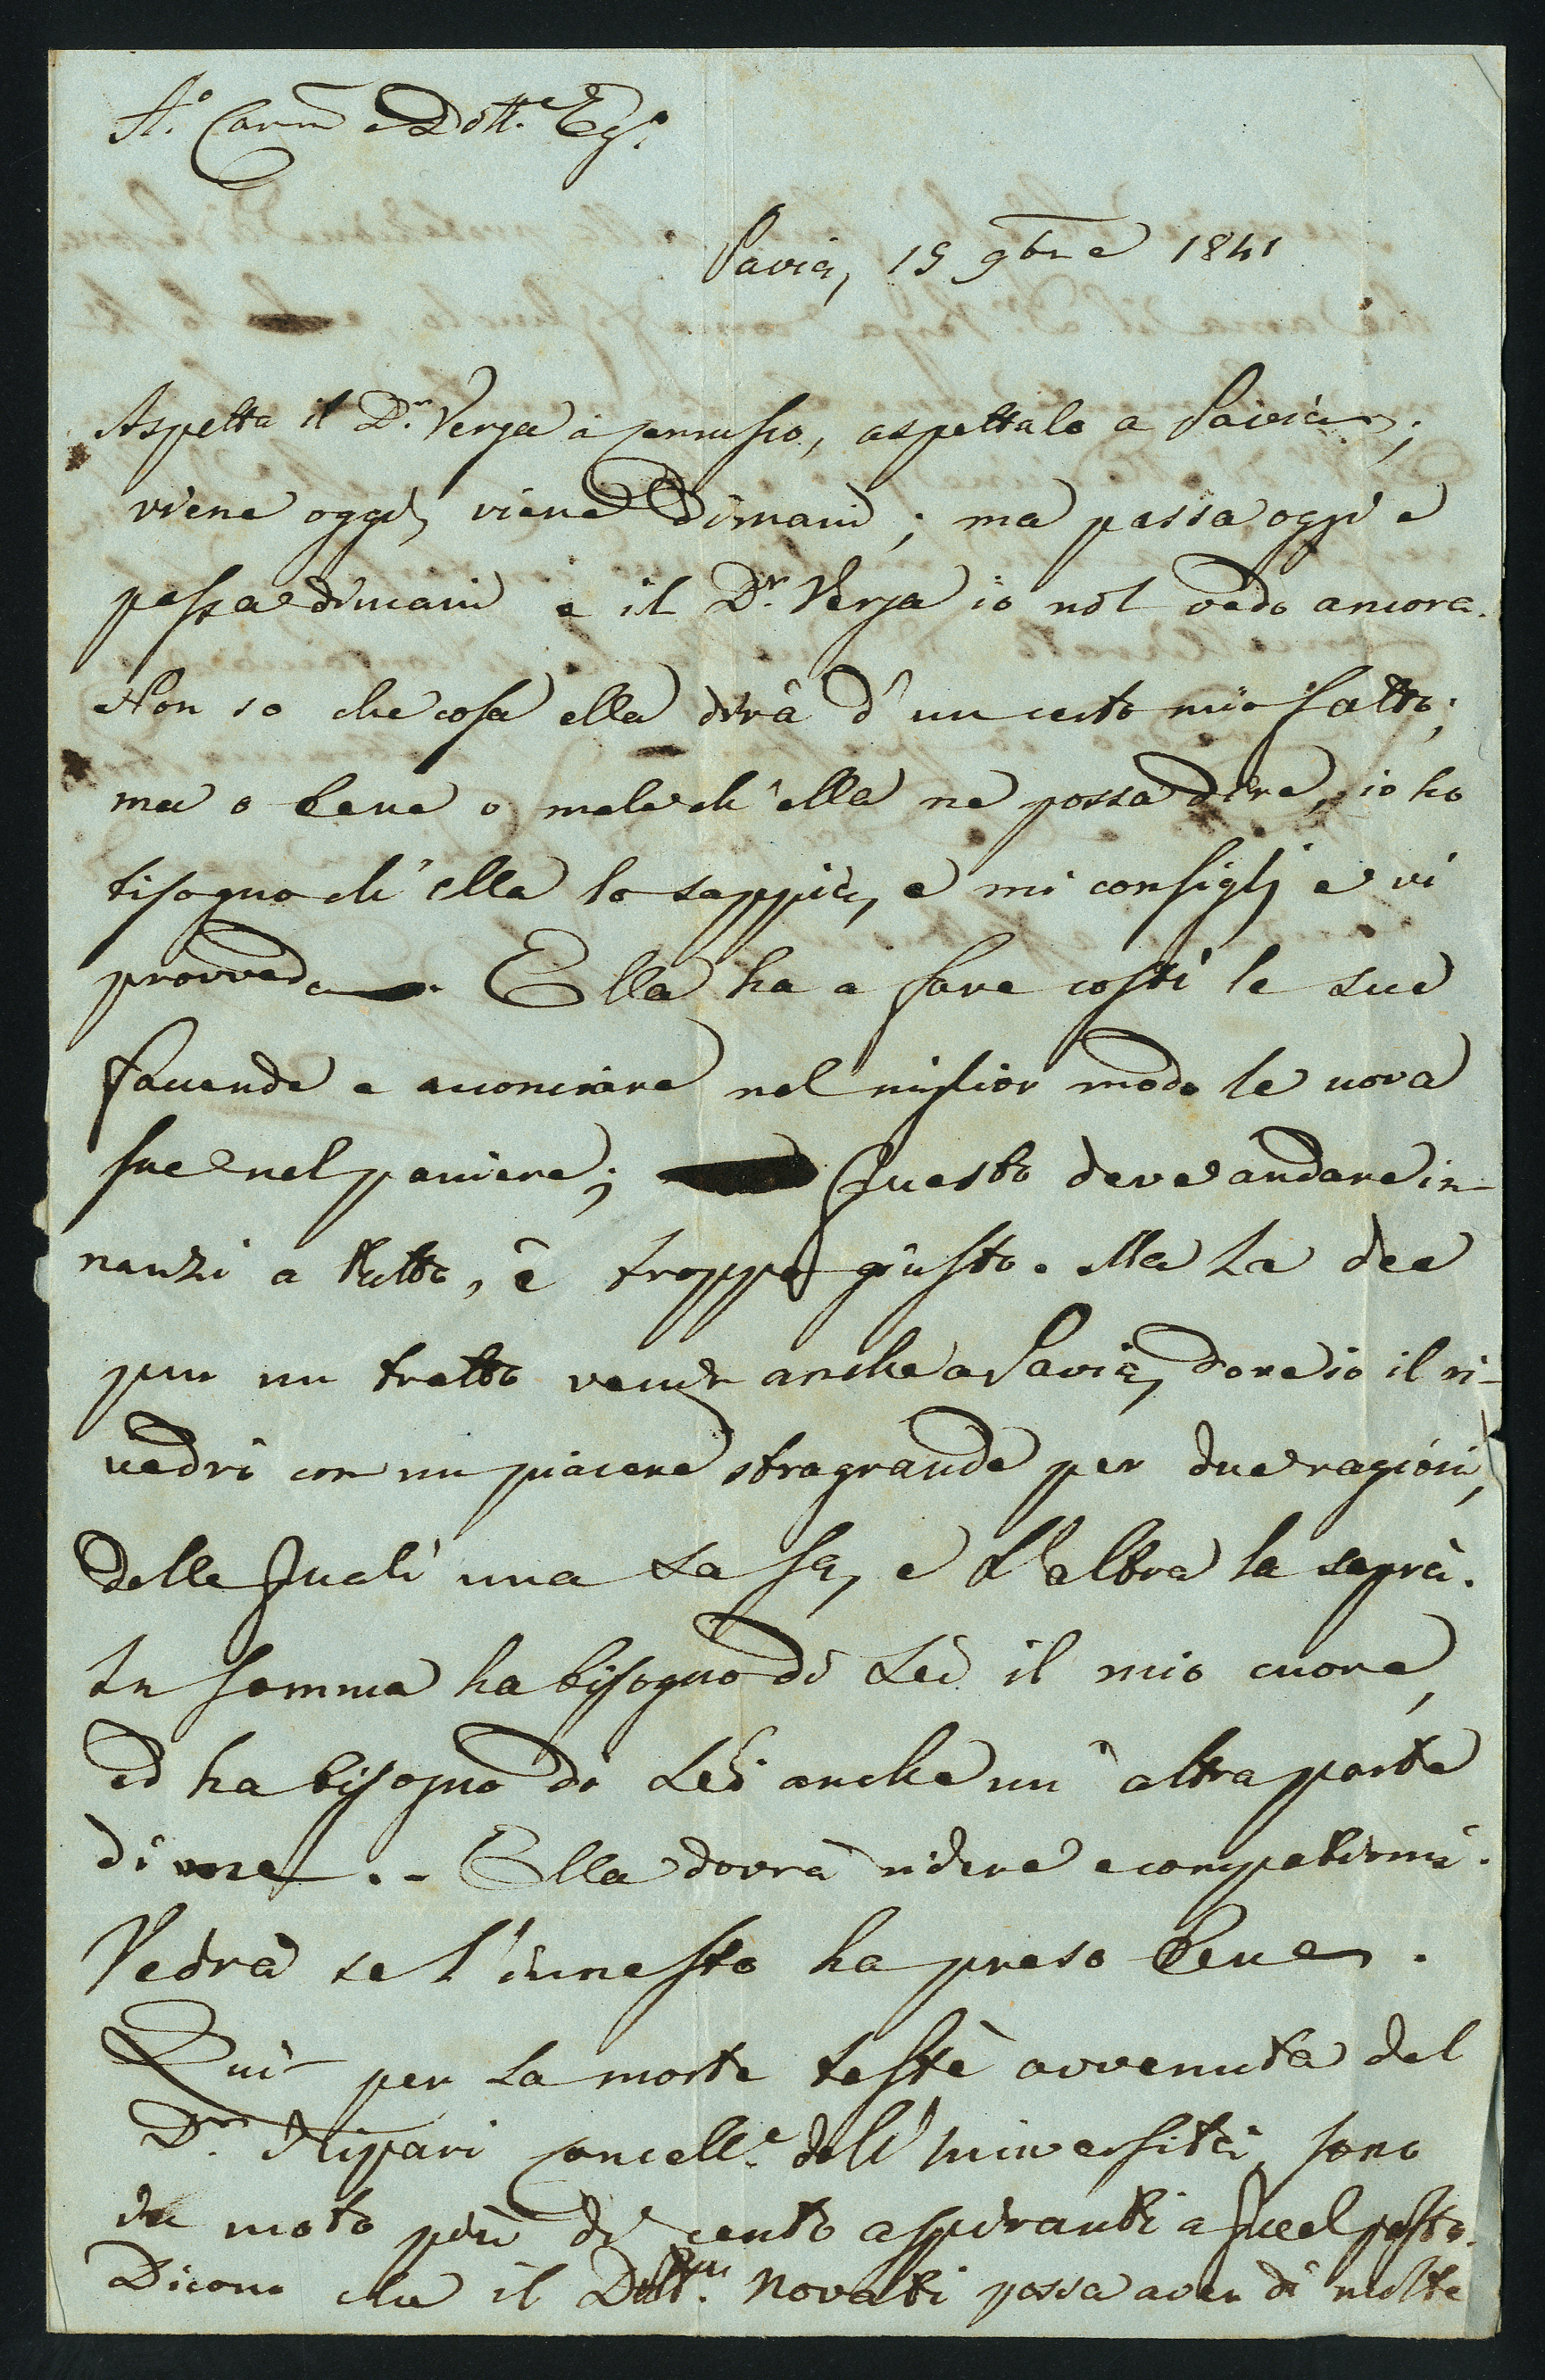 A.º Car.mo Dott.e Eg.º
Pavia, 15 9bre 1841
Aspetta il D.r Verga a Cernusco, aspettalo a Pavia;
viene oggi, viene dimani; ma passa oggi e
passa dimani e il D.r Verga io nol vedo ancora.
Non so che cosa ella dirà d'un certo mio fatto;
ma o bene o male ch'ella ne possa dire, io ho
bisogno ch'ella lo sappia, e mi consigli e vi
provveda. Ella ha a fare costì le sue
faccende e acconciare nel miglior modo le uova
sue nel paniere; Questo deve andare in-
nanzi a tutto, è troppo giusto. Ma La dee
pur un tratto venir anche a Pavia, dove io il ri-
vedrò con un piacere stragrande per due ragioni,
delle quali una La sa, e L'altra la saprà.
In somma ha bisogno di Lei il mio cuore,
ed ha bisogno di Lei anche un'altra parte
di me. - Ella dovrà ridere e compatirmi.
Vedrà se l'innesto ha preso bene.
Qui per La morte testè avvenuta del
D.r Ripari Cancell.e dell'Università sono
in moto più di cento aspiranti a quel posto.
Dicono che il Dott. Novati possa aver di molte